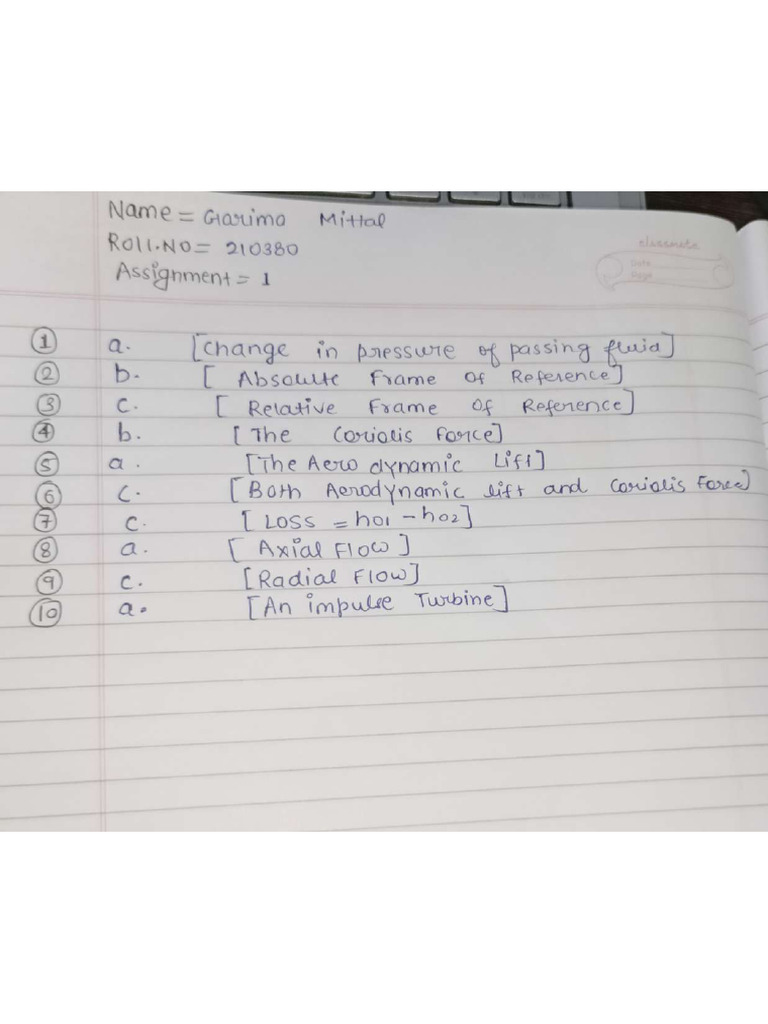 Name = Garima Mittal
Roll.No = 210380
classmate
Date
Page
Assignment = 1
1 a. [Change in pressure of passing fluid]
2 b. [Absolute Frame of Reference]
3 c. [Relative Frame of Reference]
4 b. [The Coriolis Force]
5 a. [The Aero dynamic Lift]
6 c. [Both Aerodynamic lift and Coriolis Force]
7 c. [Loss = h01 - h02]
8 a. [Axial Flow]
9 c. [Radial Flow]
10 a. [An impulse Turbine]